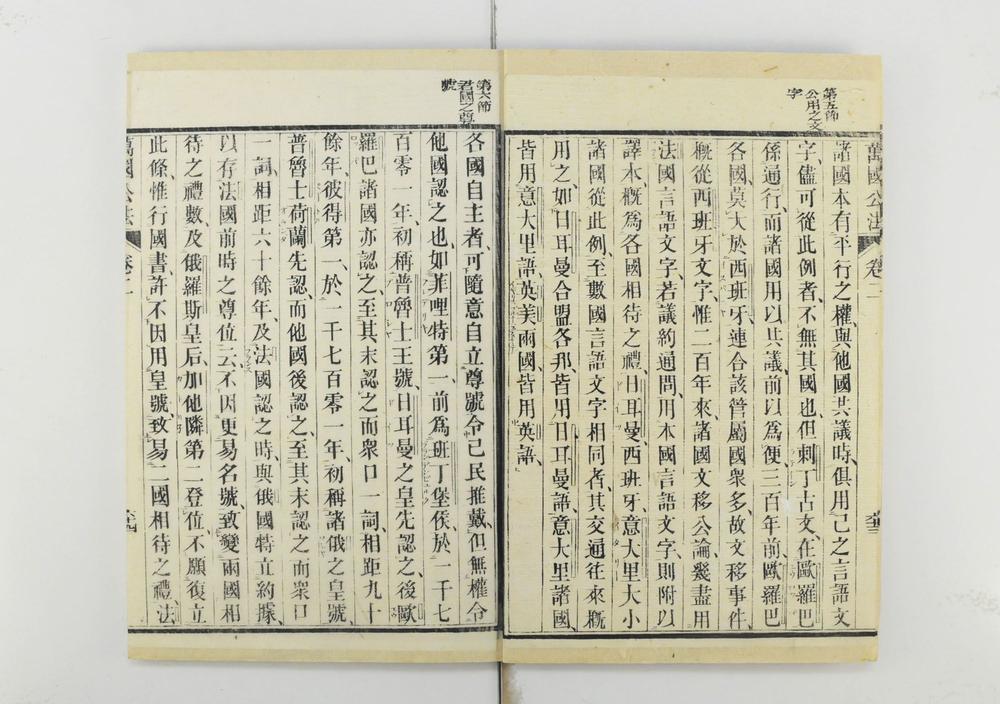 第五節
公用之文
字
諸國本有平行之權與他國共議時俱用己之言語文
字、儘可從此例者、不無其國也、但剌丁古文、在歐羅巴
係通行、而諸國用以共議、前以爲便、三百年前、歐羅巴
各國、莫大於西班牙、連合該管屬國衆多、故文移事件、
概從西班牙文字、惟二百年來、諸國文移公論、幾盡用
法國言語文字、若議約通問、用本國言語文字、則附以
譯本、概爲各國相待之禮、日耳曼、西班牙、意大里大小
諸國從此例、至數國言語文字相同者、其交通往來、概
用之、如日耳曼合盟各邦、皆用日耳曼語、意大里諸國、
皆用意大里語、英美兩國、皆用英語、
萬國公法
卷二
第六節
君國之尊
號
各國自主者、可隨意自立尊號、令己民推戴、但無權令
他國認之也、如菲哩特第一、前爲班丁堡侯、於一千七
百零一年、初稱普魯士王號、日耳曼之皇先認之、後歐
羅巴諸國亦認之、至其末認之而衆口一詞、相距九十
餘年、彼得第一、於一千七百零一年、初稱諸俄之皇號、
普魯士荷蘭先認、而他國後認之、至其末認之而衆口
一詞、相距六十餘年、及法國認之時、與俄國特立約據、
以存法國前時之尊位、云不因更易名號、致變兩國相
待之禮數、及俄羅斯皇后、加他隣第二登位、不願復立
此條、惟行國書、許不因用皇號、致易二國相待之禮、法
萬國公法
卷二